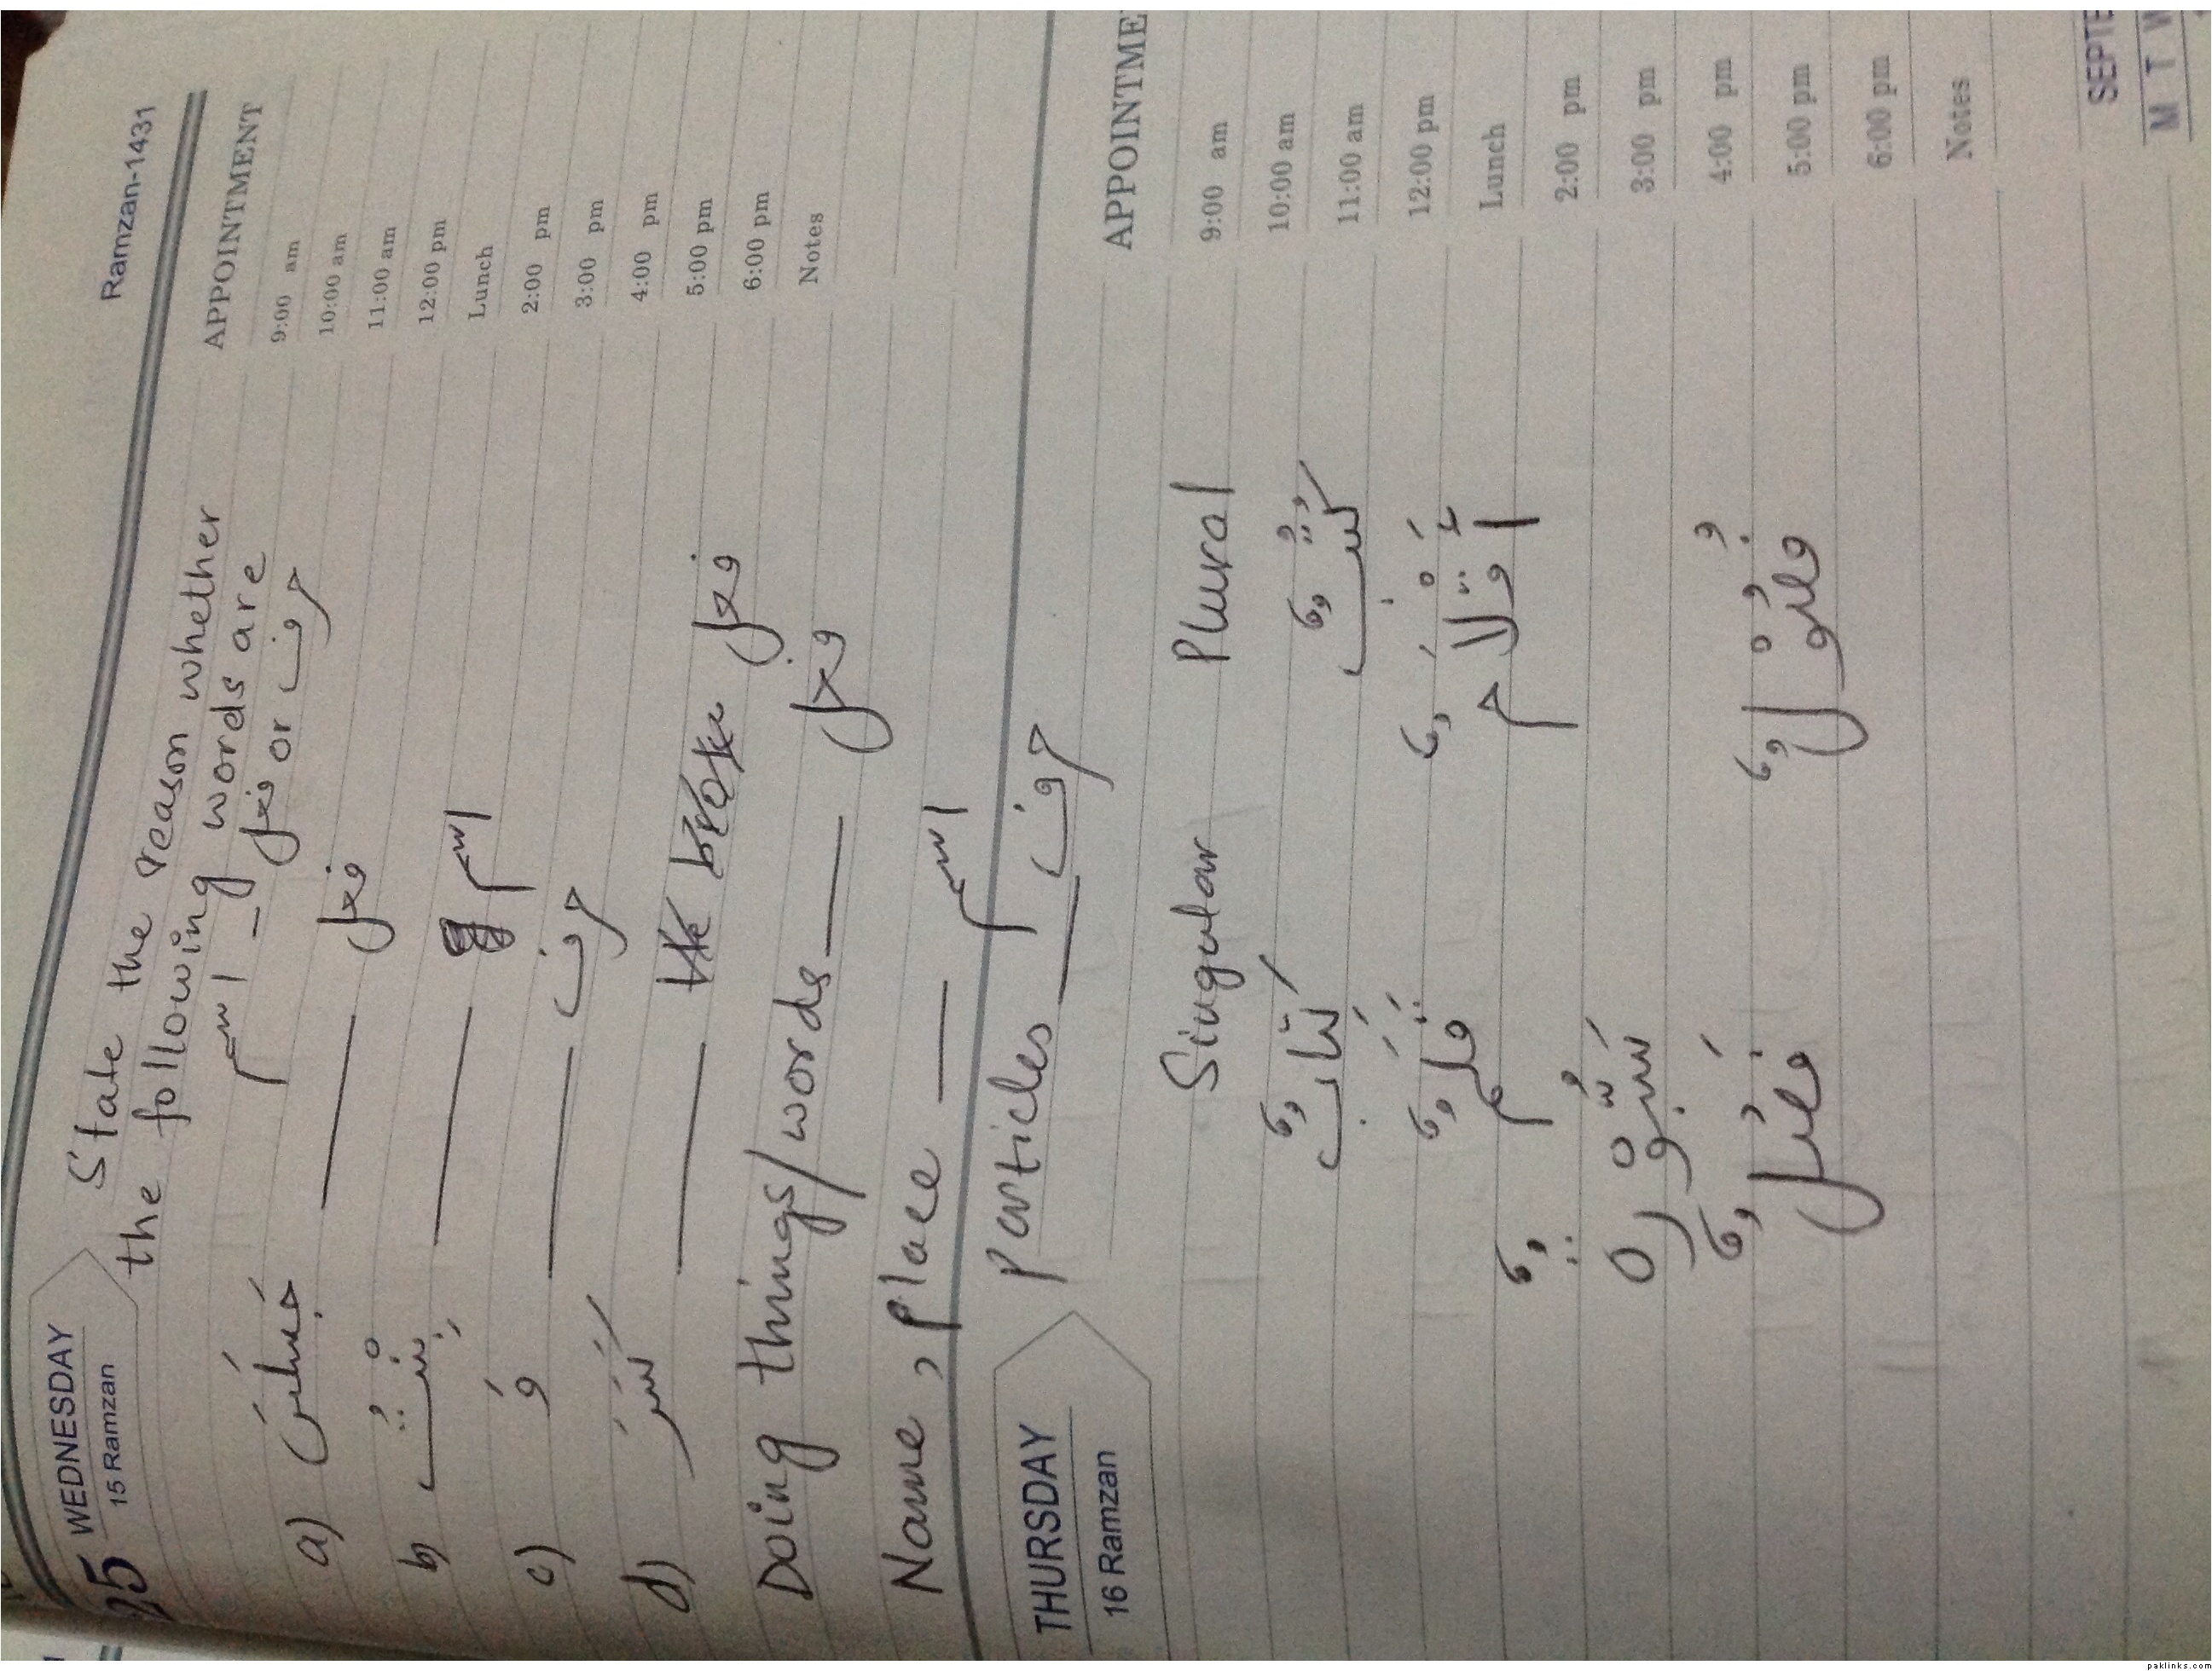 Ramzan-1431
25 WEDNESDAY
15 Ramzan
State the reason whether
the following words are
اسم - فعل or حرف
APPOINTMENT
9:00 am
10:00 am
11:00 am
12:00 pm
Lunch
2:00 pm
3:00 pm
4:00 pm
5:00 pm
6:00 pm
Notes
a) جَلَسَ — فعل
b) بِنْتُ — اسم
c) وَ — حرف
d) كَسَرَ — فعل
Doing things/words — فعل
Name, place — اسم
Particles — حرف
THURSDAY
16 Ramzan
APPOINTME
9:00 am
10:00 am
11:00 am
12:00 pm
Lunch
2:00 pm
3:00 pm
4:00 pm
5:00 pm
6:00 pm
Notes
Singular Plural
كِتَابٌ كُتُبٌ
قَلَمٌ أَقْلَامٌ
سَبُّوْرَةٌ
SEPTE
M T W
paklinks.com